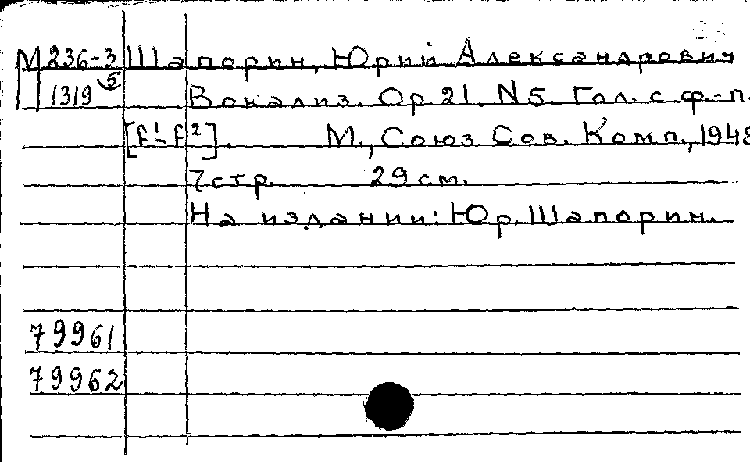 М 236-3 Шапорин, Юрий Александрович
1319 5 Вокализ. Ор. 21. N5. Гол. с ф.-п.
[f¹-f²]. М., Союз Сов. Комп., 1948
7 стр. 29 см.
На издании: Юр. Шапорин.
79961
79962